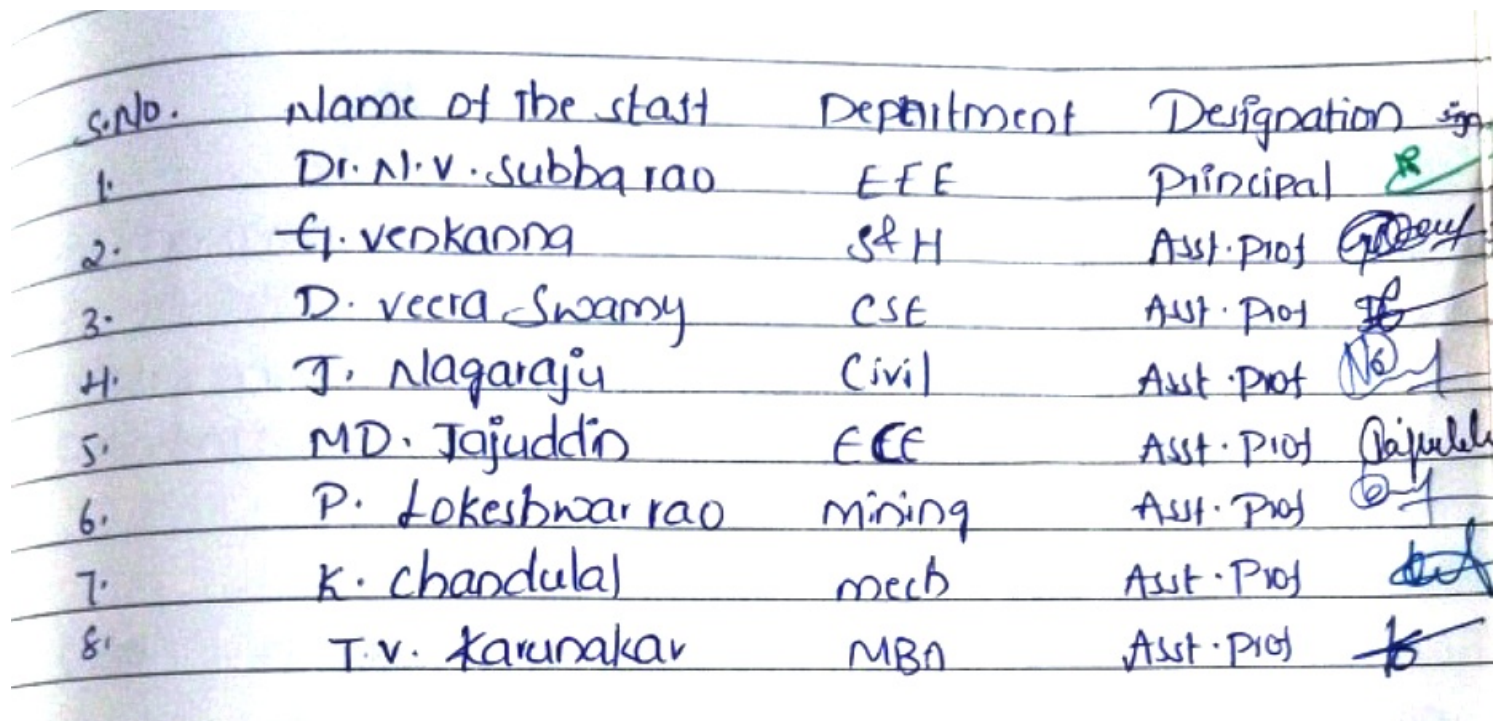 S.No. Name of the staff Department Designation sign
1. Dr. N.V. Subba rao EEE Principal
2. G. Venkanna S&H Asst. Prof
3. D. Veera Swamy CSE Asst. Prof
4. J. Nagaraju Civil Asst. Prof
5. MD. Jajuddin ECE Asst. Prof
6. P. Lokeshwar rao Mining Asst. Prof
7. K. Chandulal Mech Asst. Prof
8. T.V. Karunakar MBA Asst. Prof